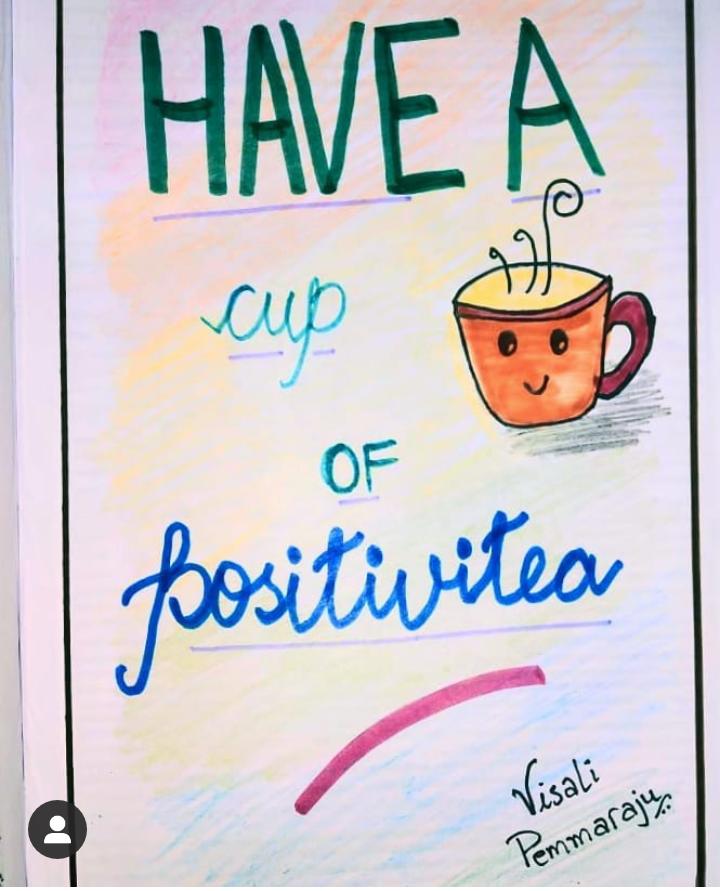 HAVE A
cup
OF
positivitea
Visali
Pemmaraju